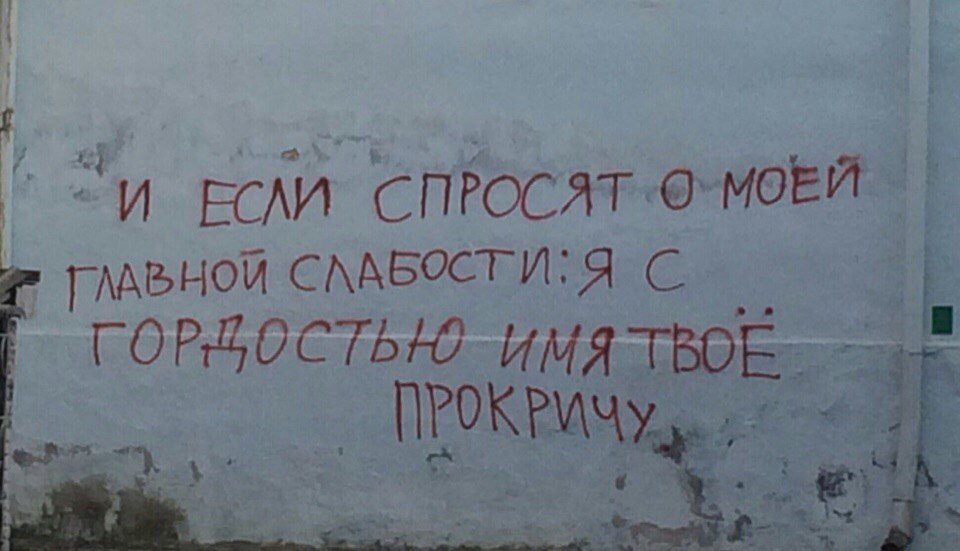 И ЕСЛИ СПРОСЯТ О МОЕЙ
ГЛАВНОЙ СЛАБОСТИ:Я С
ГОРДОСТЬЮ ИМЯ ТВОЁ
ПРОКРИЧУ